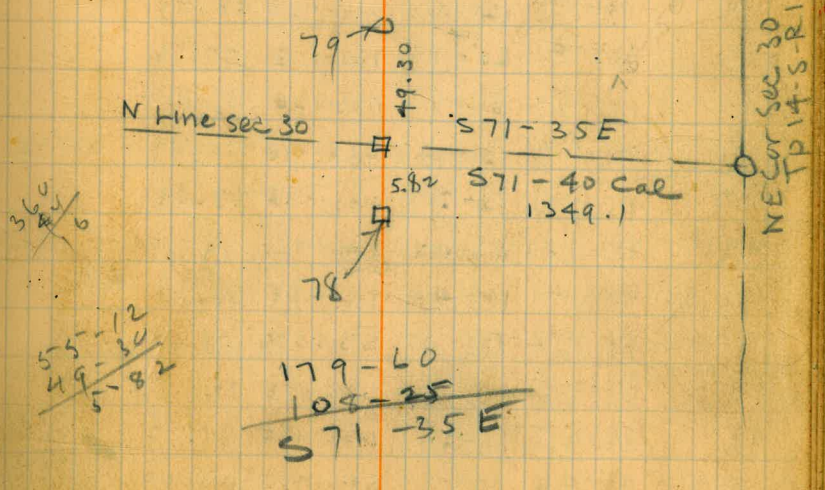 79
49.30
N Line Sec 30
S71-35E
5.82
S71-40 Cal
1349.1
78
NE Cor Sec 30
TP 14-S-R1
360
6
55-12
49-30
5-82
179-60
108-25
S71-35 E